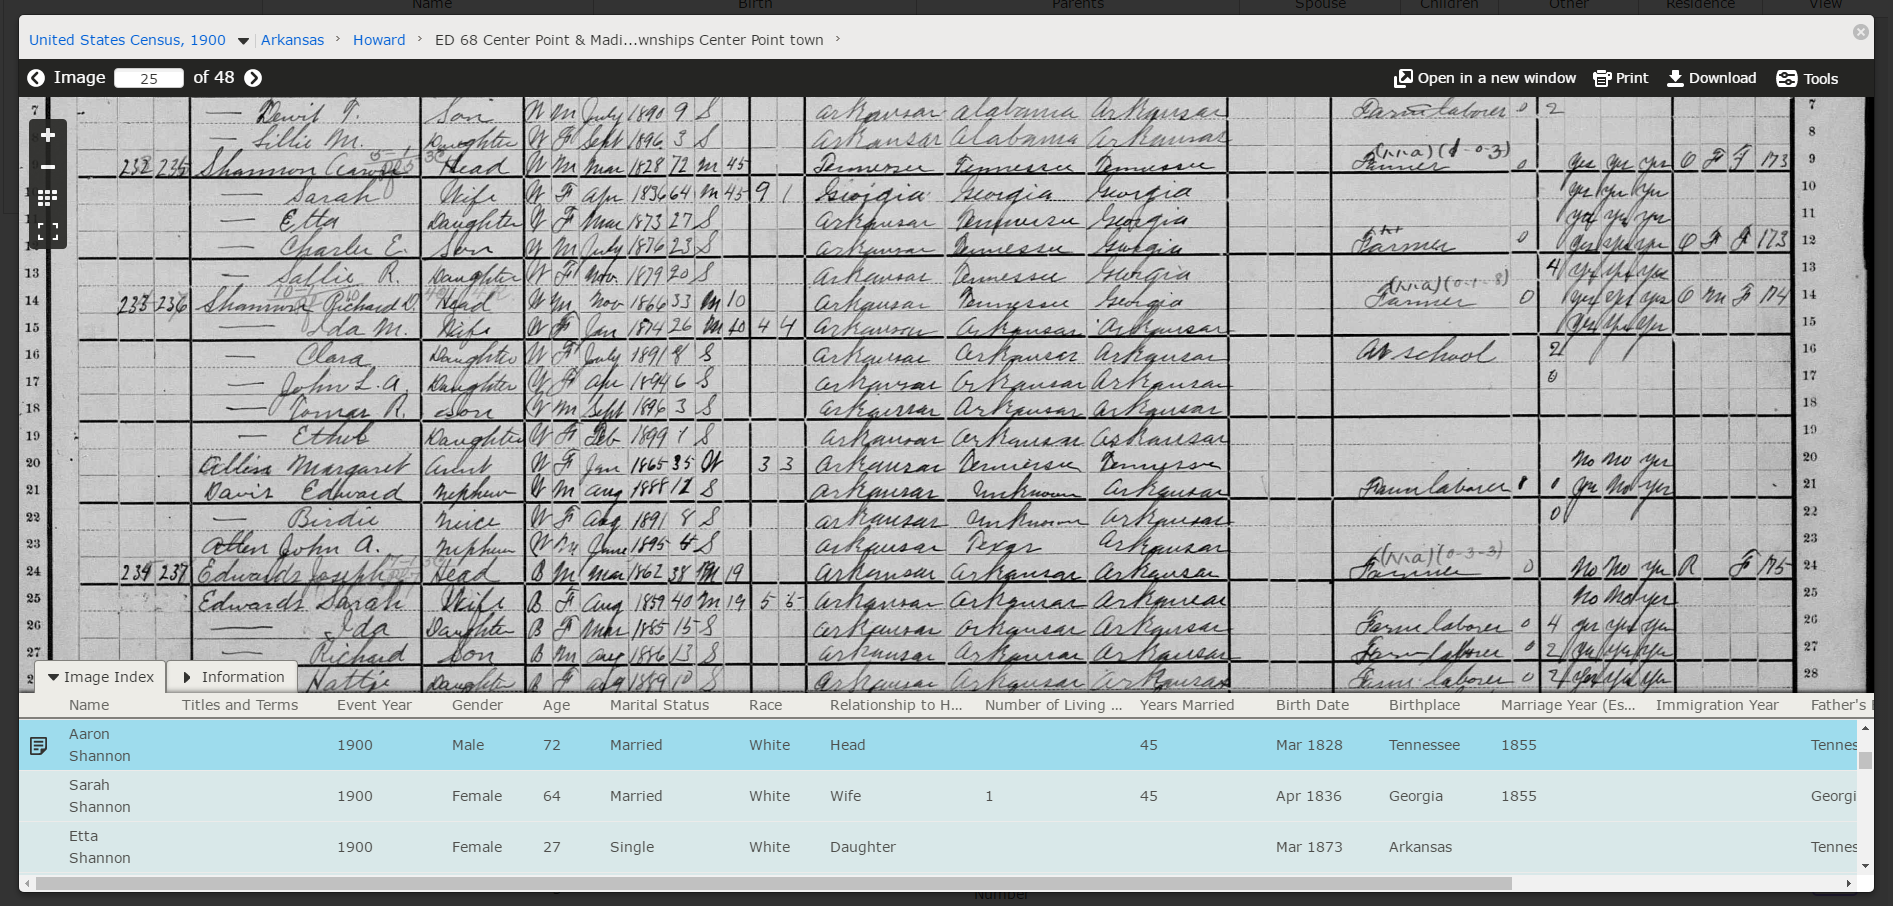 Name Birth Parents Spouse Children Other Residence View
United States Census, 1900 Arkansas › Howard › ED 68 Center Point & Madi...wnships Center Point town ›
Image 25 of 48 Open in a new window Print Download Tools
7 — Son W M July 1890 9 S Arkansas Alabama Arkansas Farm laborer 0 2 7
— Lillie M. Daughter W F Sept 1896 3 S Arkansas Alabama Arkansas 8
232 235 Shannon Head W M Mar 1828 72 M 45 Tennessee Tennessee Tennessee Farmer 0 yes yes yes O F F 173 9
10 — Sarah Wife W F Apr 1836 64 M 45 9 1 Georgia Georgia Georgia yes yes yes 10
11 — Etta Daughter W F Mar 1873 27 S Arkansas Tennessee Georgia yes yes yes 11
12 — Charles E. Son W M July 1876 23 S Arkansas Tennessee Georgia Farmer 0 yes yes yes O F F 173 12
13 — Sallie R. Daughter W F Nov. 1879 20 S Arkansas Tennessee Georgia 4 yes yes yes 13
14 233 236 Shannon Richard D. Head W M Nov 1866 33 M 10 Arkansas Tennessee Georgia Farmer 0 yes yes yes O M F 174 14
15 — Ida M. Wife W F Jan 1874 26 M 10 4 4 Arkansas Arkansas Arkansas yes yes yes 15
16 — Clara Daughter W F July 1891 8 S Arkansas Arkansas Arkansas At school 2 16
17 — John L. A. Daughter W F Apr 1894 6 S Arkansas Arkansas Arkansas 0 17
18 — Tomas R. Son W M Sept 1896 3 S Arkansas Arkansas Arkansas 18
19 — Ethel Daughter W F Feb 1899 1 S Arkansas Arkansas Arkansas 19
20 Margaret Aunt W F Jan 1865 35 W 3 3 Arkansas Tennessee Tennessee No No yes 20
21 Davis Edward Nephew W M Aug 1888 S Arkansas Unknown Arkansas Farm laborer yes No yes 21
22 — Birdie Neice W F Aug 1891 8 S Arkansas Unknown Arkansas 0 22
23 Allen John A. Nephew W M June 1895 S Arkansas Texas Arkansas 23
24 234 237 Edwards Joseph Head B M Mar 1862 38 M 19 Arkansas Arkansas Arkansas Farmer 0 No No yes R F 175 24
25 Edwards Sarah Wife B F Aug 1859 40 M 19 5 5 Arkansas Arkansas Arkansas No No yes 25
26 — Ida Daughter B F Mar 1885 15 S Arkansas Arkansas Arkansas Farm laborer 0 4 yes yes yes 26
27 — Richard Son B M Aug 1886 13 S Arkansas Arkansas Arkansas Farm laborer 0 2 yes yes yes 27
Hattie Daughter B F Aug 1889 10 S Arkansas Arkansas Arkansas Farm laborer 0 2 yes yes yes 28
Image Index Information
Name Titles and Terms Event Year Gender Age Marital Status Race Relationship to H... Number of Living ... Years Married Birth Date Birthplace Marriage Year (Es... Immigration Year Father's
Aaron
Shannon 1900 Male 72 Married White Head 45 Mar 1828 Tennessee 1855 Tennes
Sarah
Shannon 1900 Female 64 Married White Wife 1 45 Apr 1836 Georgia 1855 Georgi
Etta
Shannon 1900 Female 27 Single White Daughter Mar 1873 Arkansas Tennes
Number